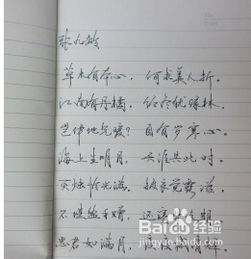 张九龄
草木有本心,何求美人折。
江南有丹橘,经冬犹绿林。
岂伊地气暖?自有岁寒心。
海上生明月,天涯共此时。
灭烛怜光满,披衣觉露滋。
不堪盈手赠,还寝梦佳期。
思君如满月,夜夜减清辉。
Baidu经验